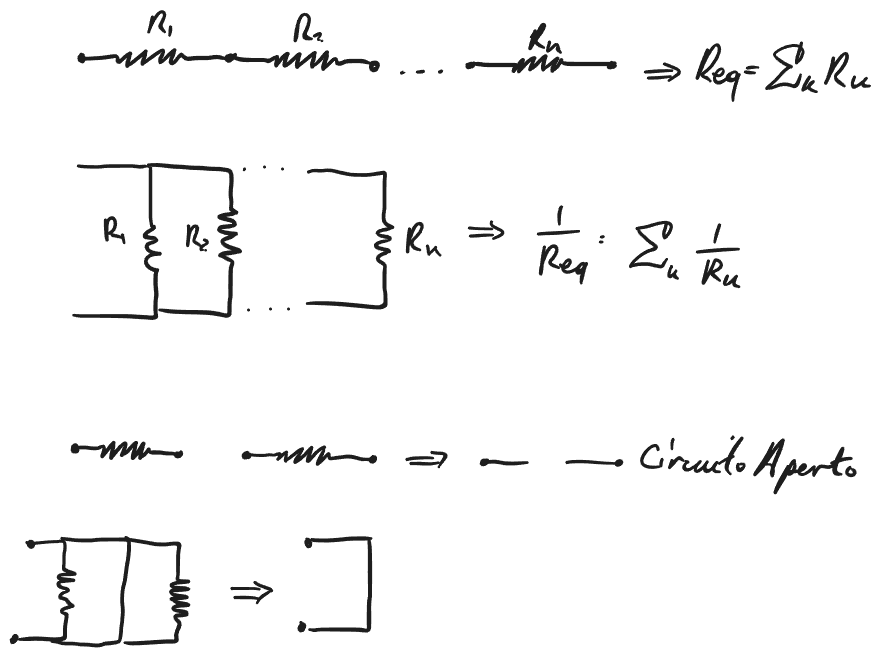 R₁ R₂ .... Rₙ ⇒ Req = Σₖ Rₖ
R₁ R₂ ... Rₙ ⇒ 1/Req = Σₖ 1/Rₖ
⇒ Circuito Aperto
⇒